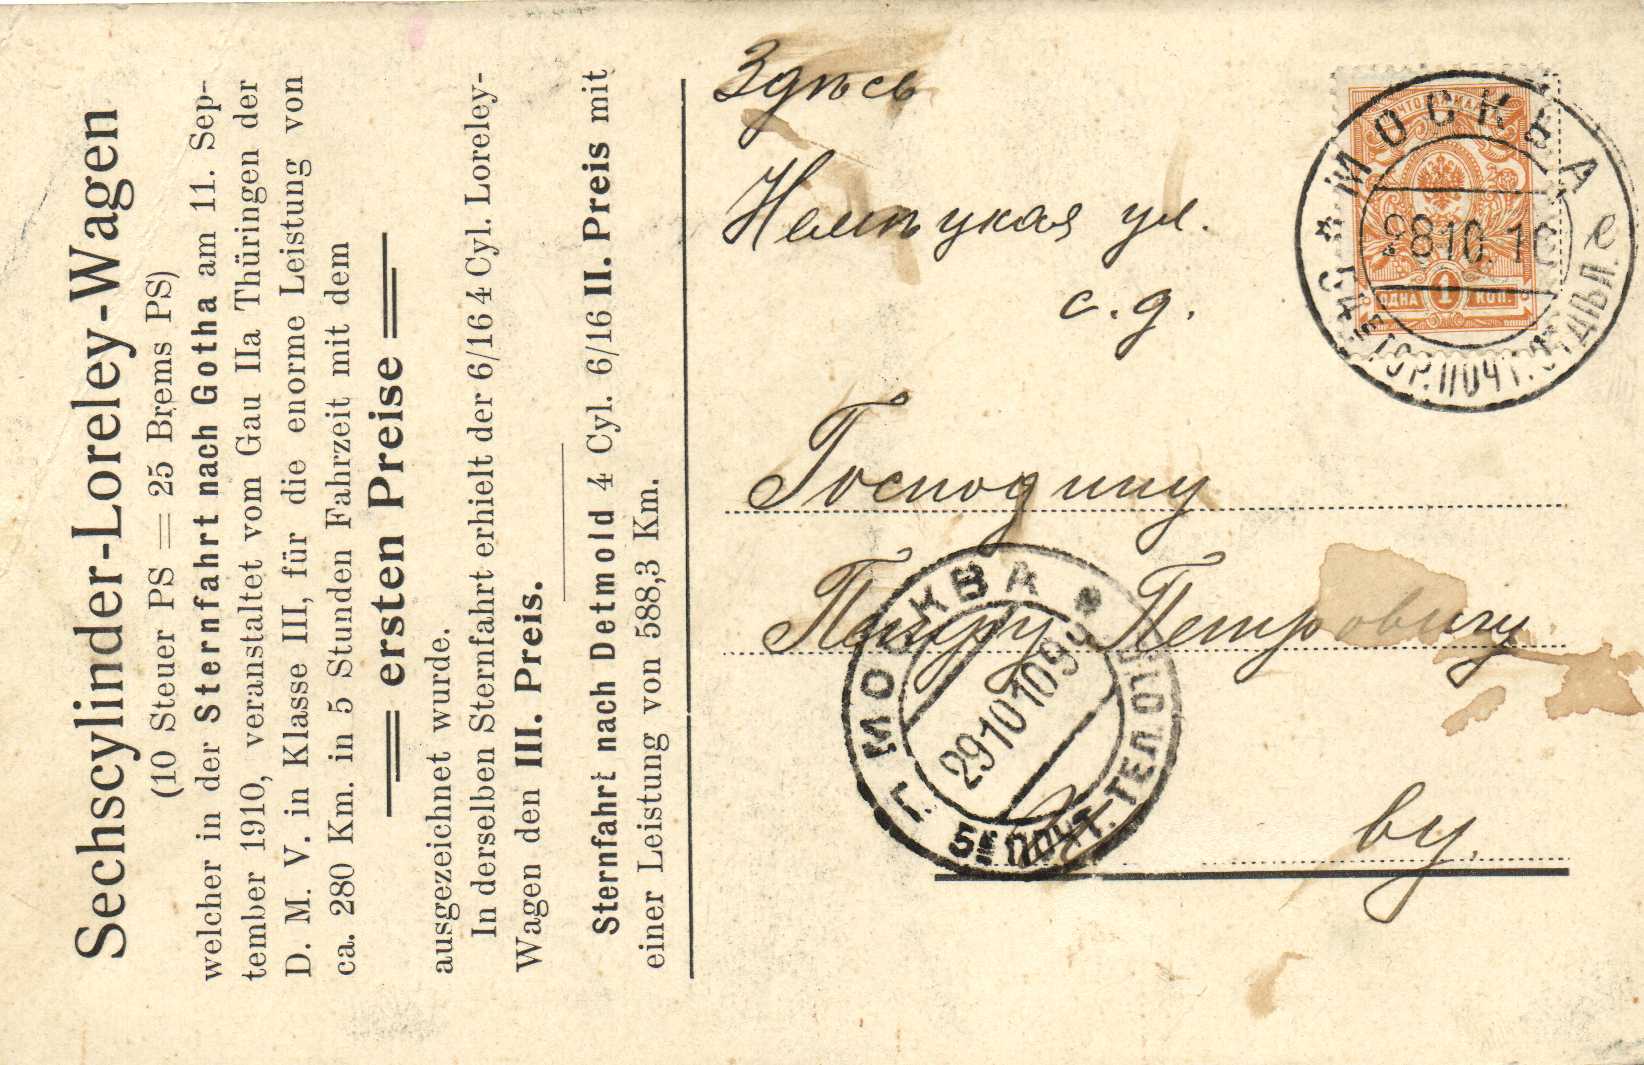 Sechscylinder-Loreley-Wagen
(10 Steuer PS = 25 Brems PS)
welcher in der Sternfahrt nach Gotha am 11. Sep-
tember 1910, veranstaltet vom Gau IIa Thüringen der
D. M. V. in Klasse III, für die enorme Leistung von
ca. 280 Km. in 5 Stunden Fahrzeit mit dem
ersten Preise
ausgezeichnet wurde.
In derselben Sternfahrt erhielt der 6/16 4 Cyl. Loreley-
Wagen den III. Preis.
Sternfahrt nach Detmold 4 Cyl. 6/16 II. Preis mit
einer Leistung von 588,3 Km.
Здѣсь
Немѣцкая ул.
с. д.
Господину
Петру Петровичу
ву.
МОСКВА
28 10. 10
ГОР. ПОЧТ. ОТДѢЛ.
ОДНА 1 КОП.
Г. МОСКВА
29 10 10
5Е ПОЧТ. ТЕЛ. ОТД.